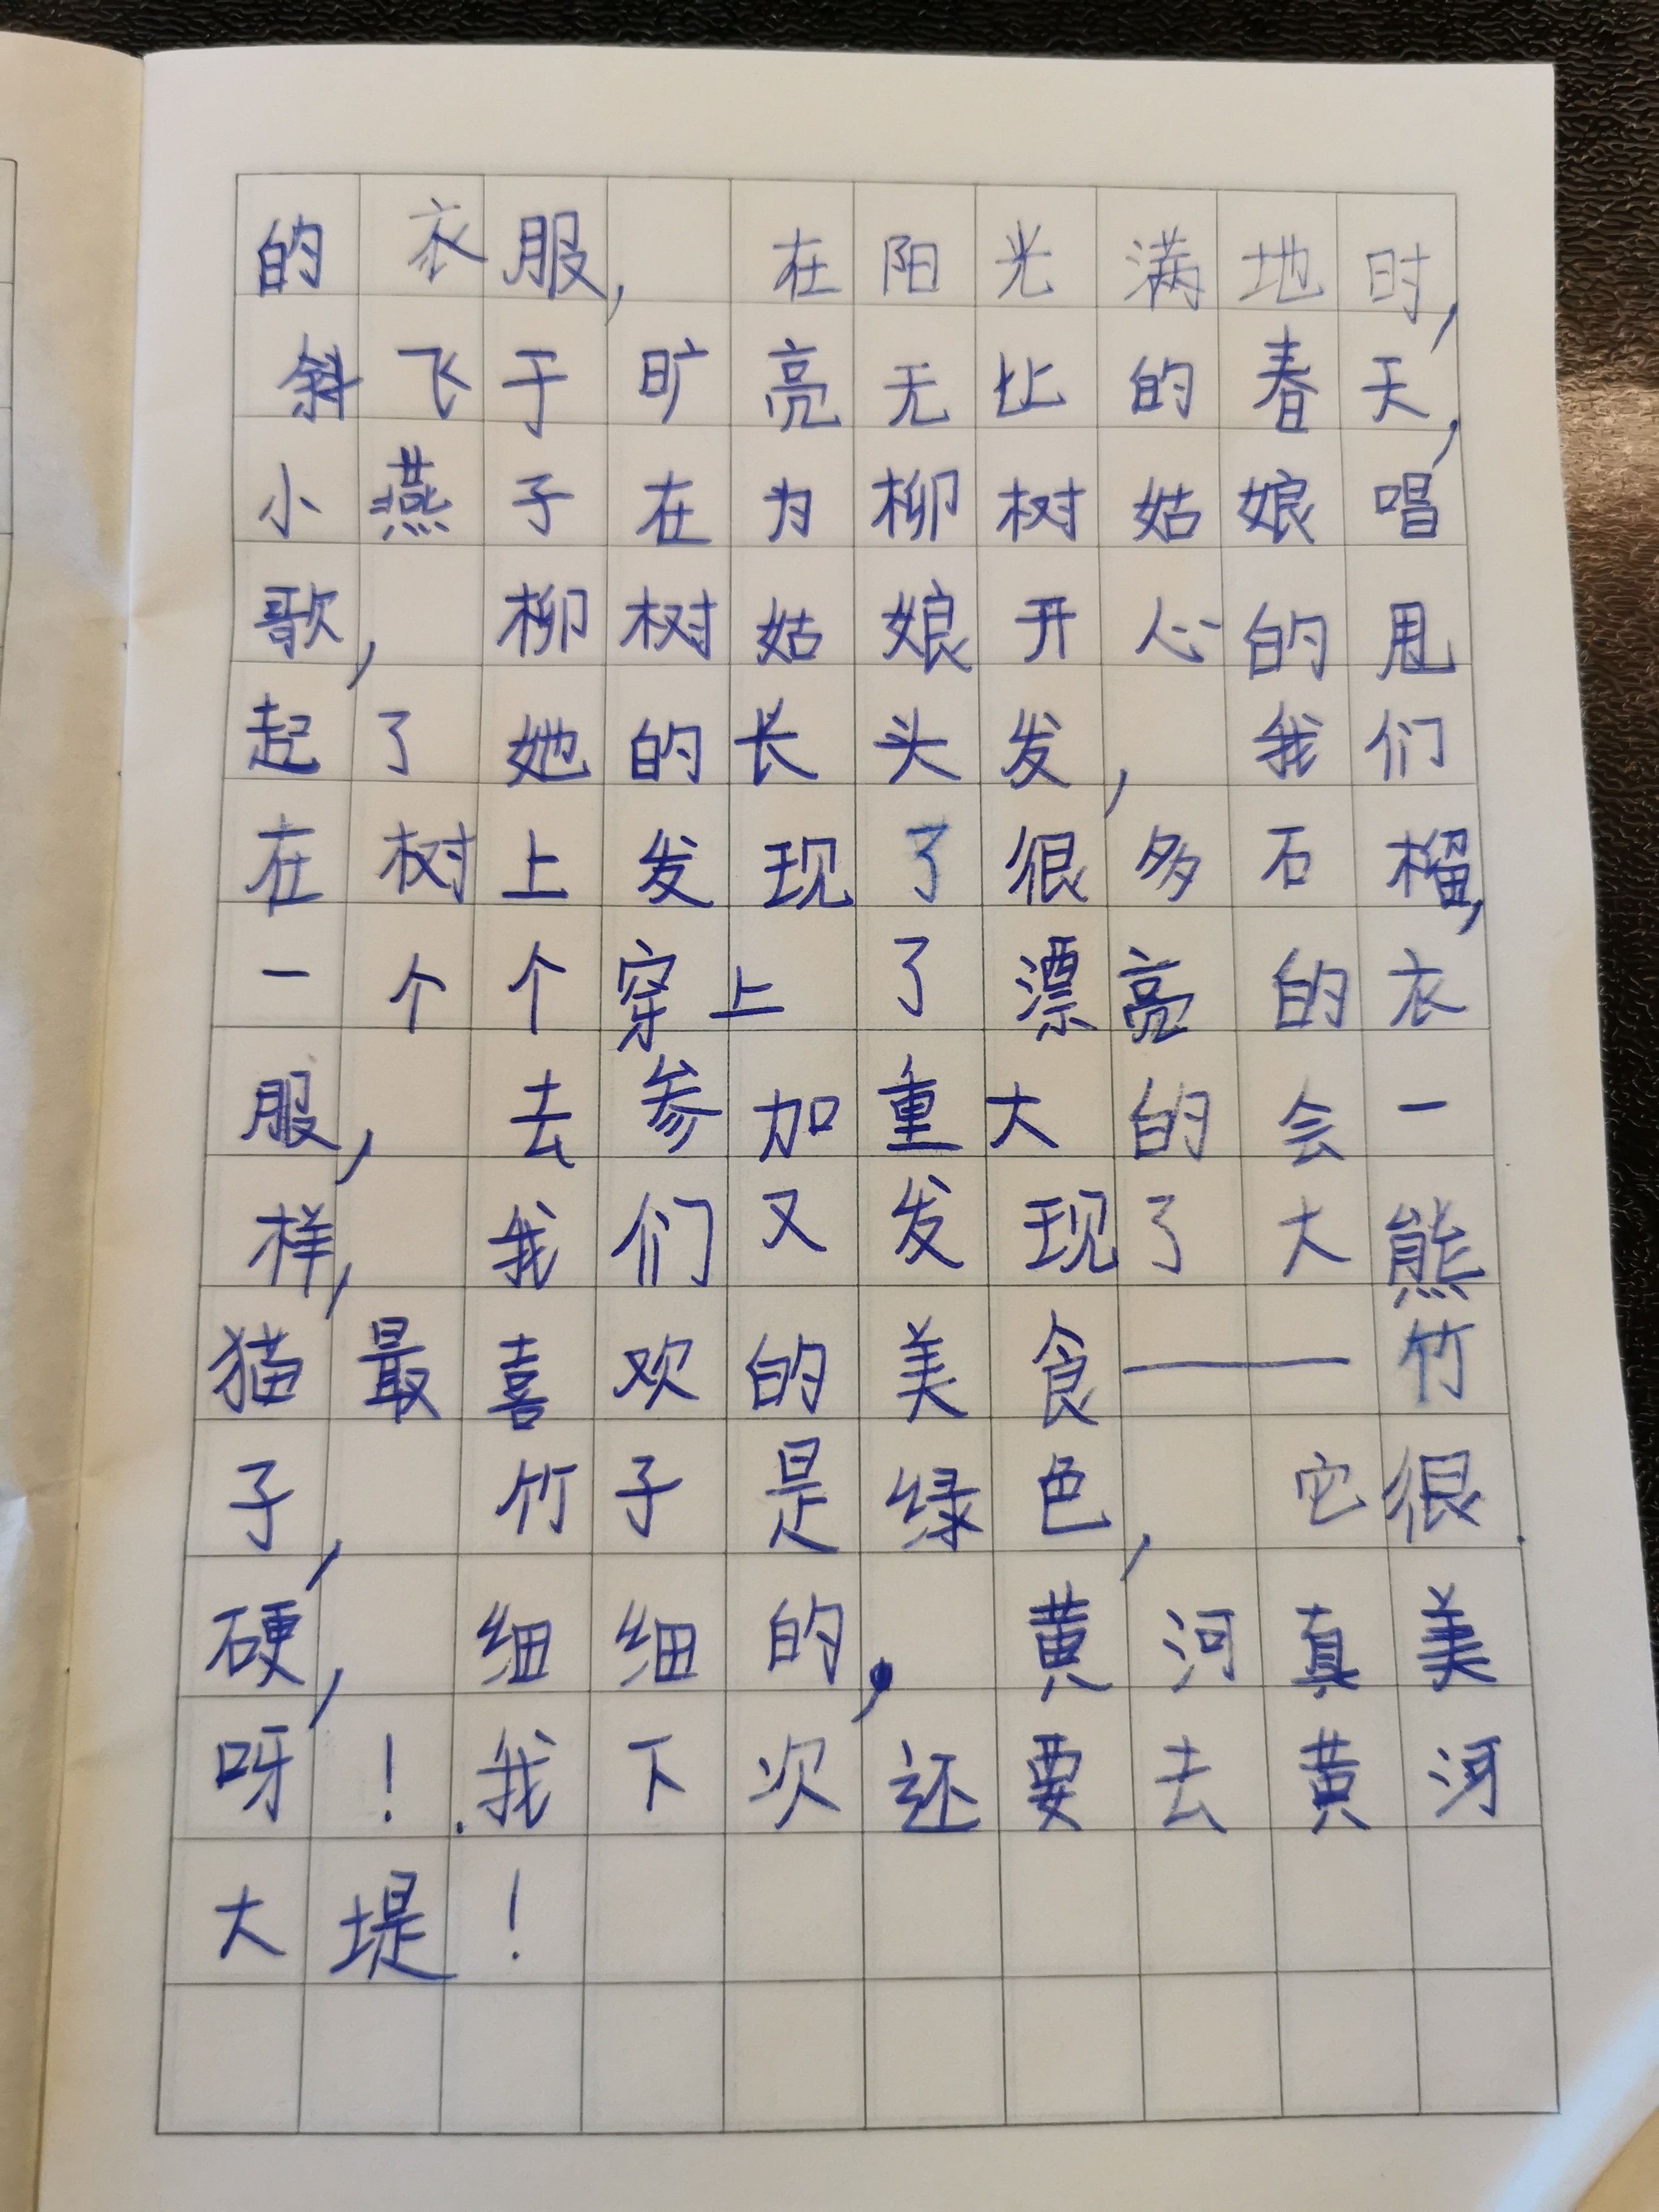 的衣服,在阳光满地时,
斜飞于旷亮无比的春天,
小燕子在为柳树姑娘唱
歌,柳树姑娘开心的甩
起了她的长头发,我们
在树上发现了很多石榴,
一个个穿上了漂亮的衣
服,去参加重大的会一
样,我们又发现了大熊
猫最喜欢的美食——竹
子,竹子是绿色,它很
硬,细细的,黄河真美
呀!我下次还要去黄河
大堤!